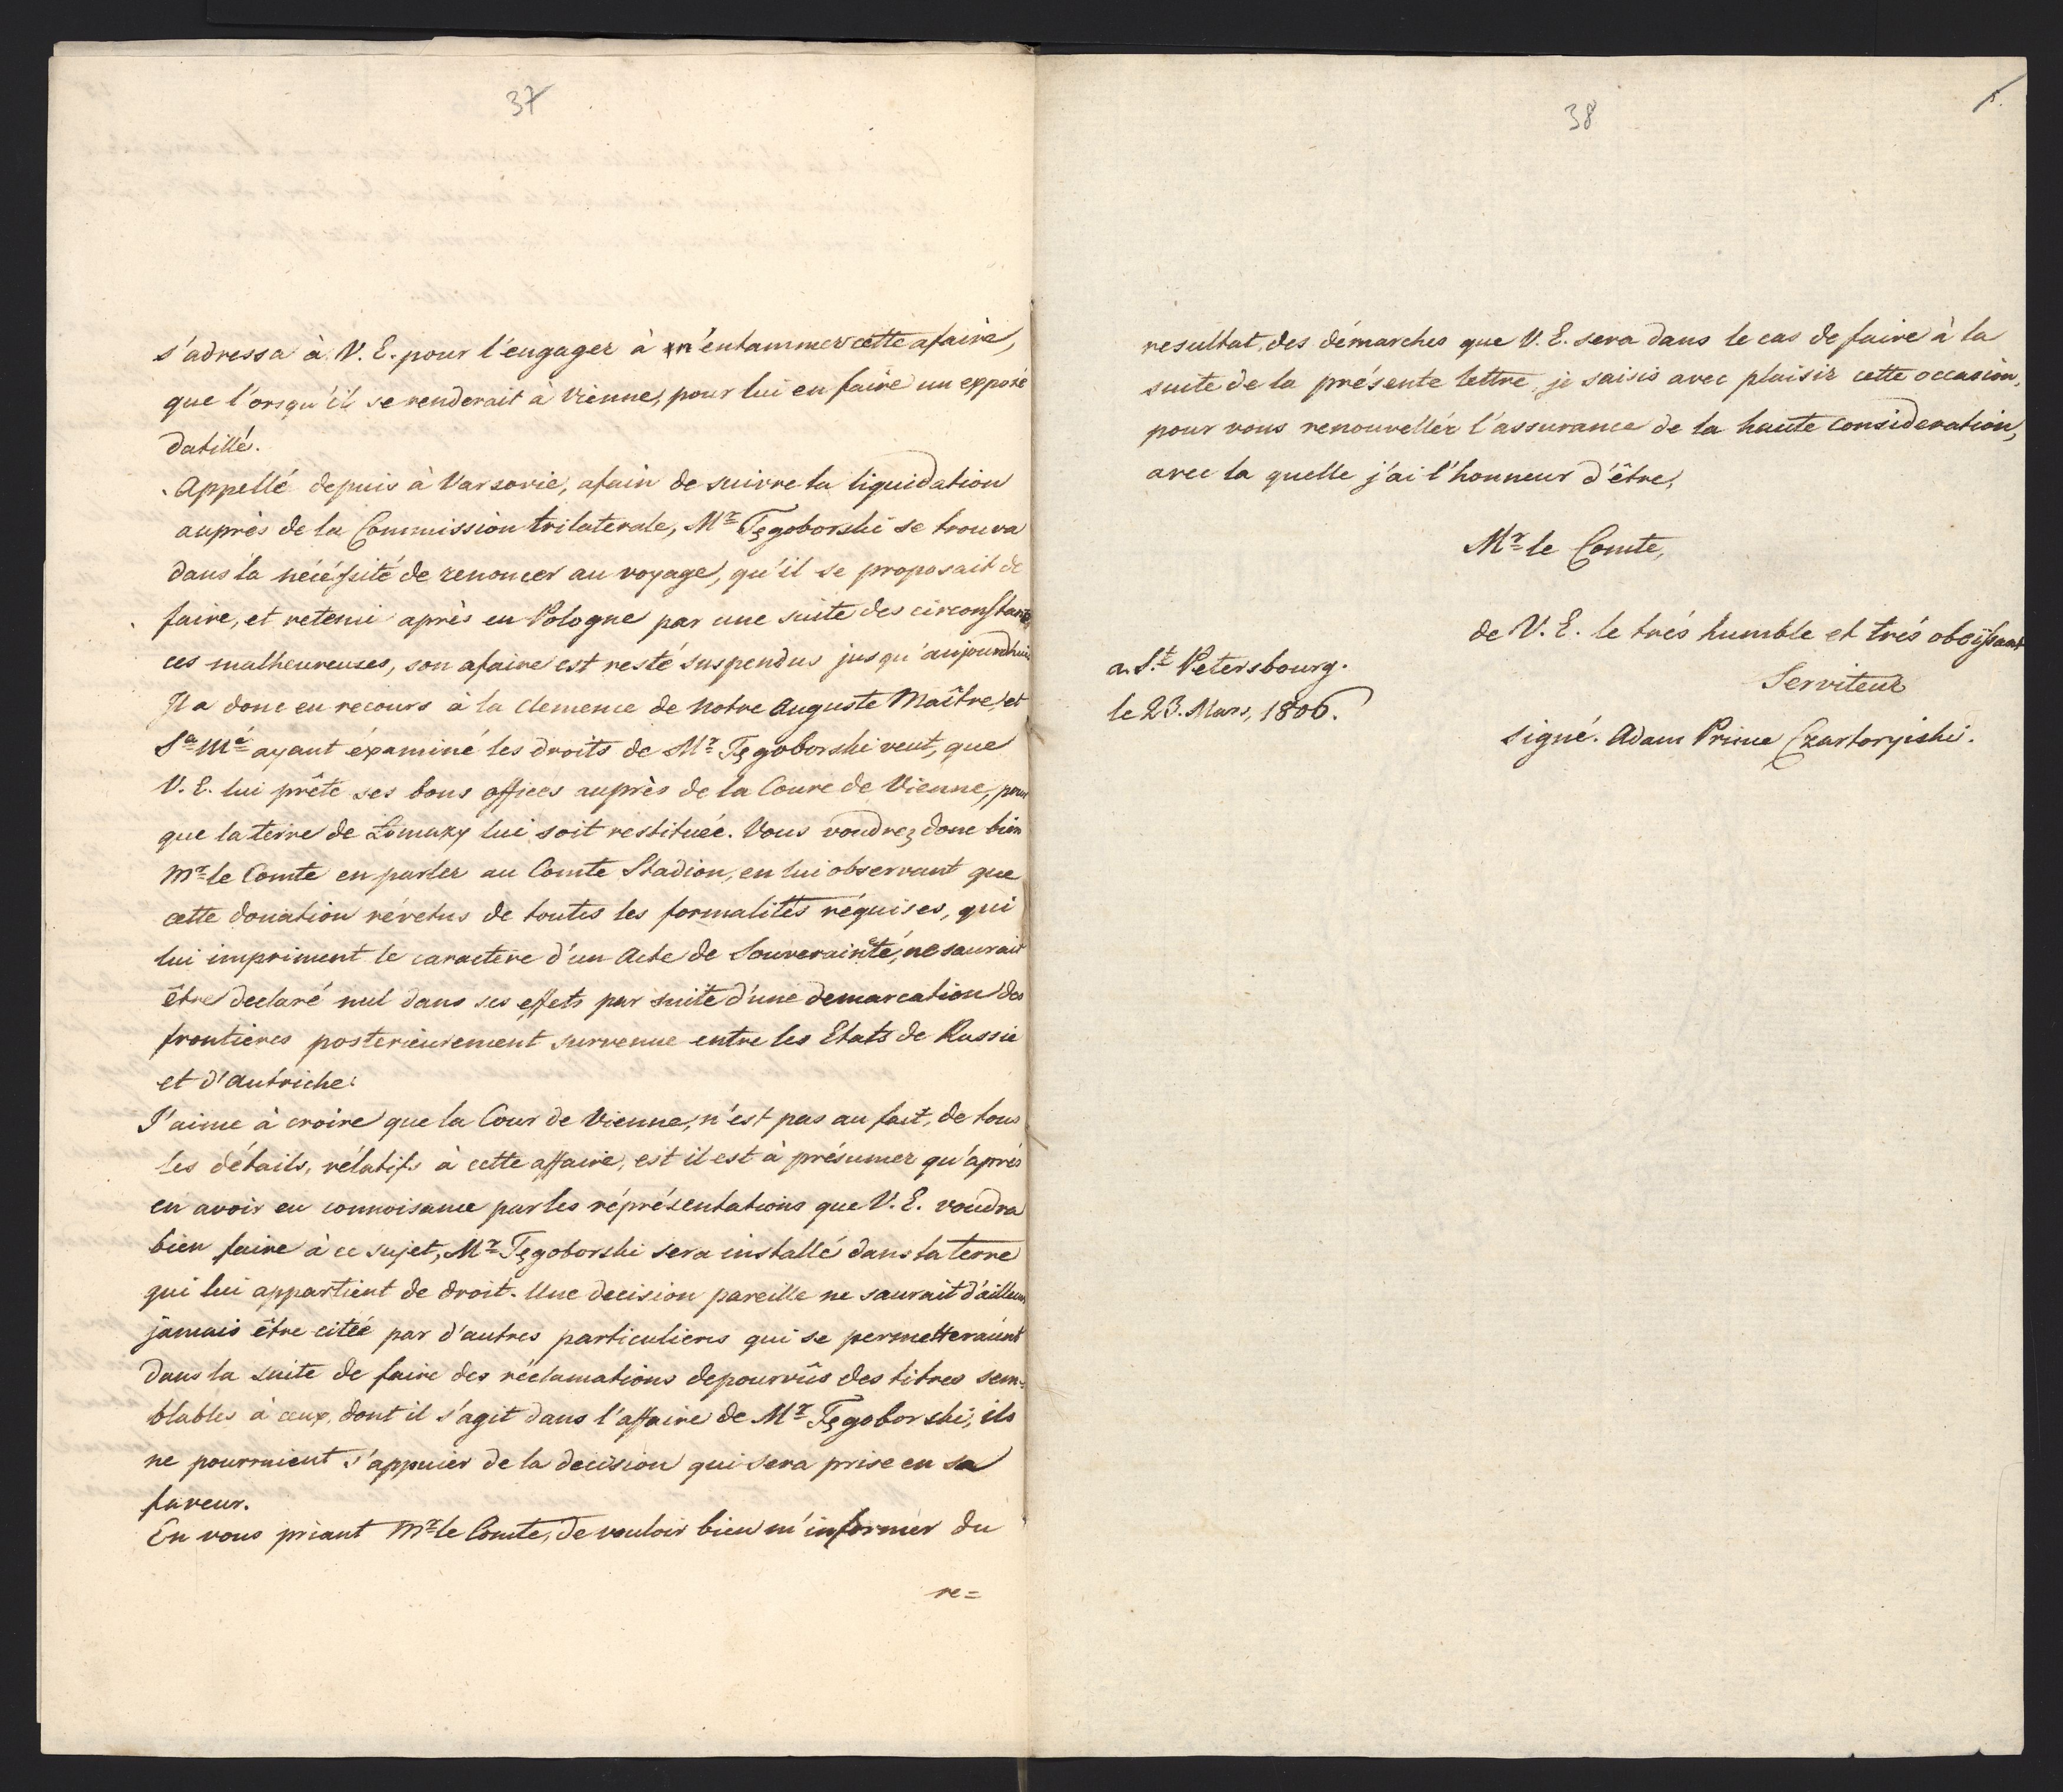 37
s'adressa à V. E. pour l'engager à n'entammer cette afaire,
que l'orsqu'il se renderait à Vienne, pour lui en faire un exposé
datillé.
Appellé depuis à Varsovie, afain de suivre la liquidation
auprès de la Commission trilaterale, Mr Tęgoborski se trouva
dans la nécéssité de renoncer au voyage, qu'il se proposait de
faire, et retenu après en Pologne par une suite des circonstan
ces malheureuses, son afaire est resté suspendus jusqu'aujourd'hui
Il a donc eu recours à la clemence de notre Auguste Maître, et
Sa Mé ayant éxaminé les droits de Mr Tęgoborski veut, que
V. E. lui prête ses bons offices auprès de la Coure de Vienne, pour
que la terre de lui soit restituée. Vous voudrez donc bien
Mr le Comte en parler au Comte Stadion, en lui observant que
cette donation révetus de toutes les formalités réquises, qui
lui impriment le caractere d'un Acte de Souveraineté, ne saurait
être declaré nul dans ses effets par suite d'une demarcation des
frontières posterieurement survenue entre les Etats de Russie
et d'Autriche.
J'aime à croire que la Cour de Vienne, n'est pas au fait, de tous
les détails, rélatifs à cette affaire, est il est à présumer qu'après
en avoir eu connoisance par les répréséntations que V. E. voudra
bien faire à ce sujet, Mr Tęgoborski sera installé dans la terre
qui lui appartient de droit. Une decision pareille ne saurait d'ailleurs
jamais être citée par d'autres particulieres qui se permetteraient
dans la suite de faire des réclamations depourvûs des titres sem=
blables à ceux, dont il s'agit dans l'affaire de Mr Tęgoborski, ils
ne pourraient s'appuier de la decision qui sera prise en sa
faveur.
En vous priant Mr le Comte, de vouloir bien m'informer du
re=
38
resultat, des démarches que V. E. sera dans le cas de faire à la
suite de la présente lettre, je saisis avec plaisir cette occasion,
pour vous renouvellér l'assurance de la haute consideration,
avec la quelle j'ai l'honneur d'être,
Mr le Comte,
de V. E. le trés humble et trés oboyssant
Serviteur
a St Petersbourg.
le 23. Mars, 1806.
signé. Adam Prince Czartoryiski.